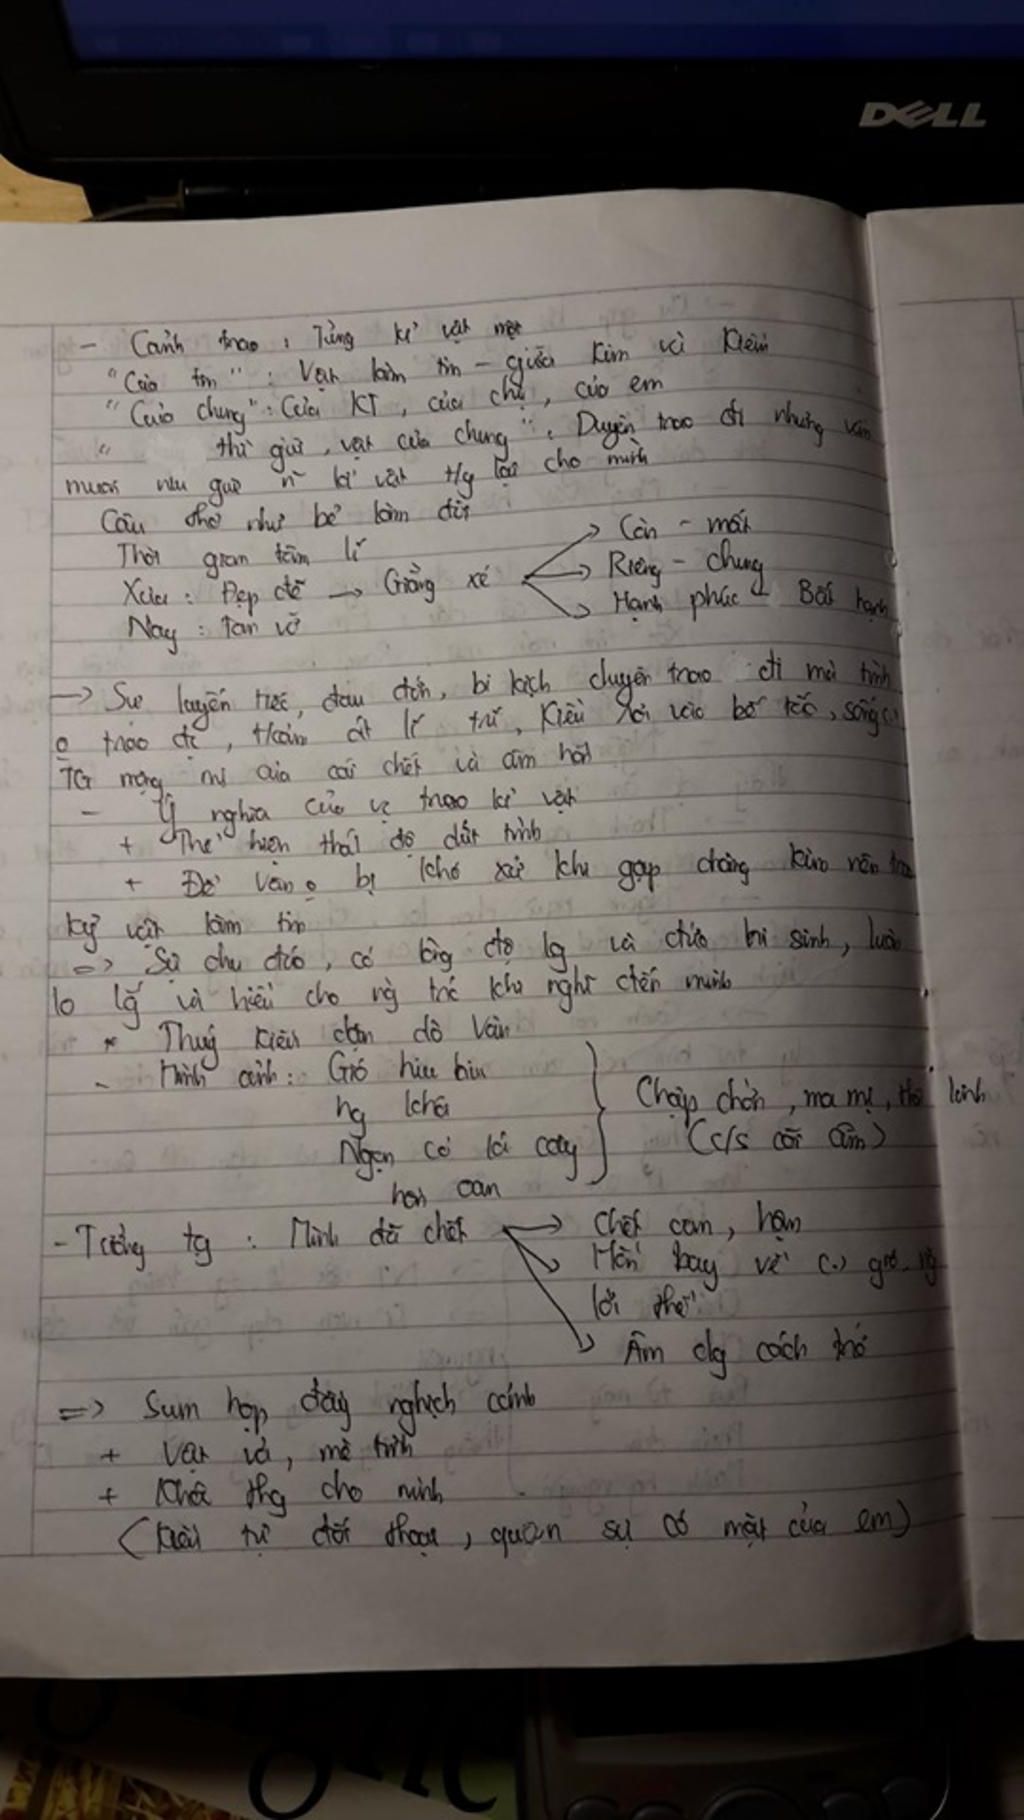 DELL
- Cảnh trao: Từng kỉ vật một
"Của tin": Vật làm tin - giữa Kim và Kiều
"Của chung": Của KT, của chị, của em
" thì giữ, vật của chung": Duyên trao đi nhưng vẫn
muốn níu giữ n~ kỉ vật t/y lại cho mình
Câu thơ như bẻ làm đôi
Thời gian tâm lí
Xưa: Đẹp đẽ → Giằng xé
Nay: Tan vỡ
Còn - mất
Riêng - chung
Hạnh phúc - Bất hạnh
→ Sự luyến tiếc, đau đớn, bi kịch duyên trao đi mà tình
o trao đi, lí trí, Kiều rơi vào bế tắc, sống
TG mộng mị của cái chết và âm hồn
- Ý nghĩa của vc trao kỉ vật
+ Thể hiện thái độ dứt tình
+ Để Vân o bị khó xử khi gặp chàng Kim nên trao
kỷ vật làm tin
=> Sự chu đáo, có lòng độ lg và đức hi sinh, luôn
lo lắng và hiểu cho ng khác khi nghĩ đến mình
* Thuý Kiều dặn dò Vân
- Hình ảnh: Gió hiu hiu
Ngọn cỏ lá cây
hồn oan
Chập chờn, ma mị, thê
(c/s cõi âm)
- Tưởng tg: Mình đã chết
Chết oan, hận
Hồn bay về gió
lời thề
Âm dg cách trở
=> Sum họp đầy nghịch cảnh
+ Vật vã, mê tình
+ Khóc thg cho mình
(Kiều tự đối thoại, quên sự có mặt của em)